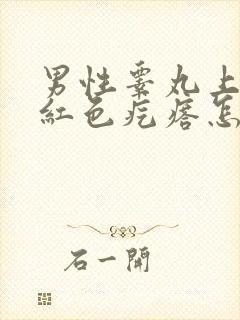 男性睾丸上
紅色疙瘩怎
石一開